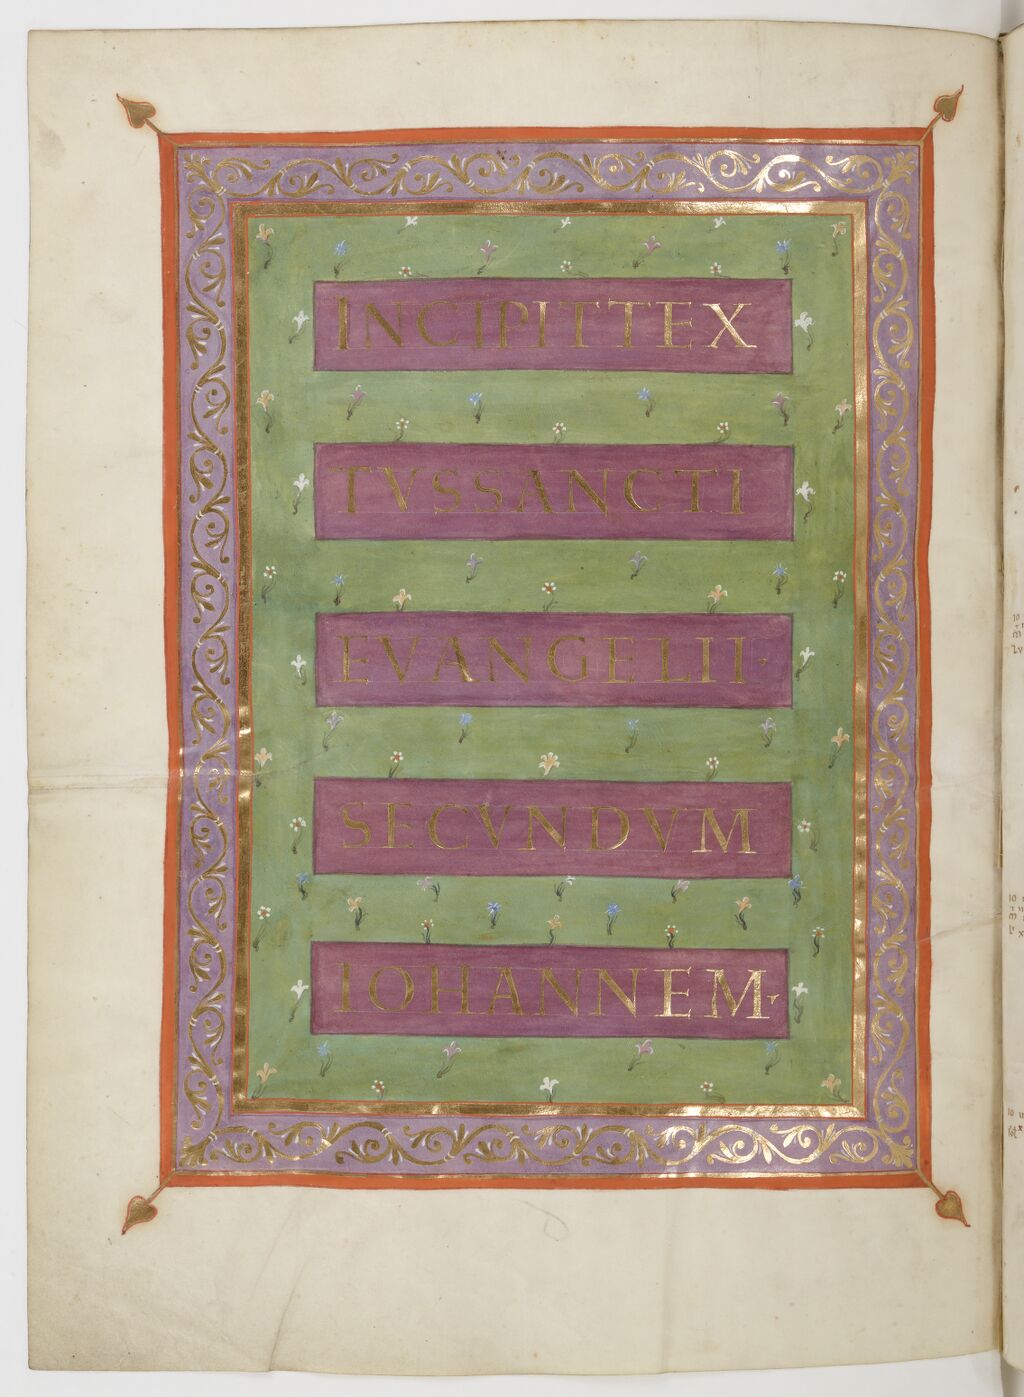 INCIPITTEX
TVSSANCTI
EVANGELII·
SECVNDVM
IOHANNEM·